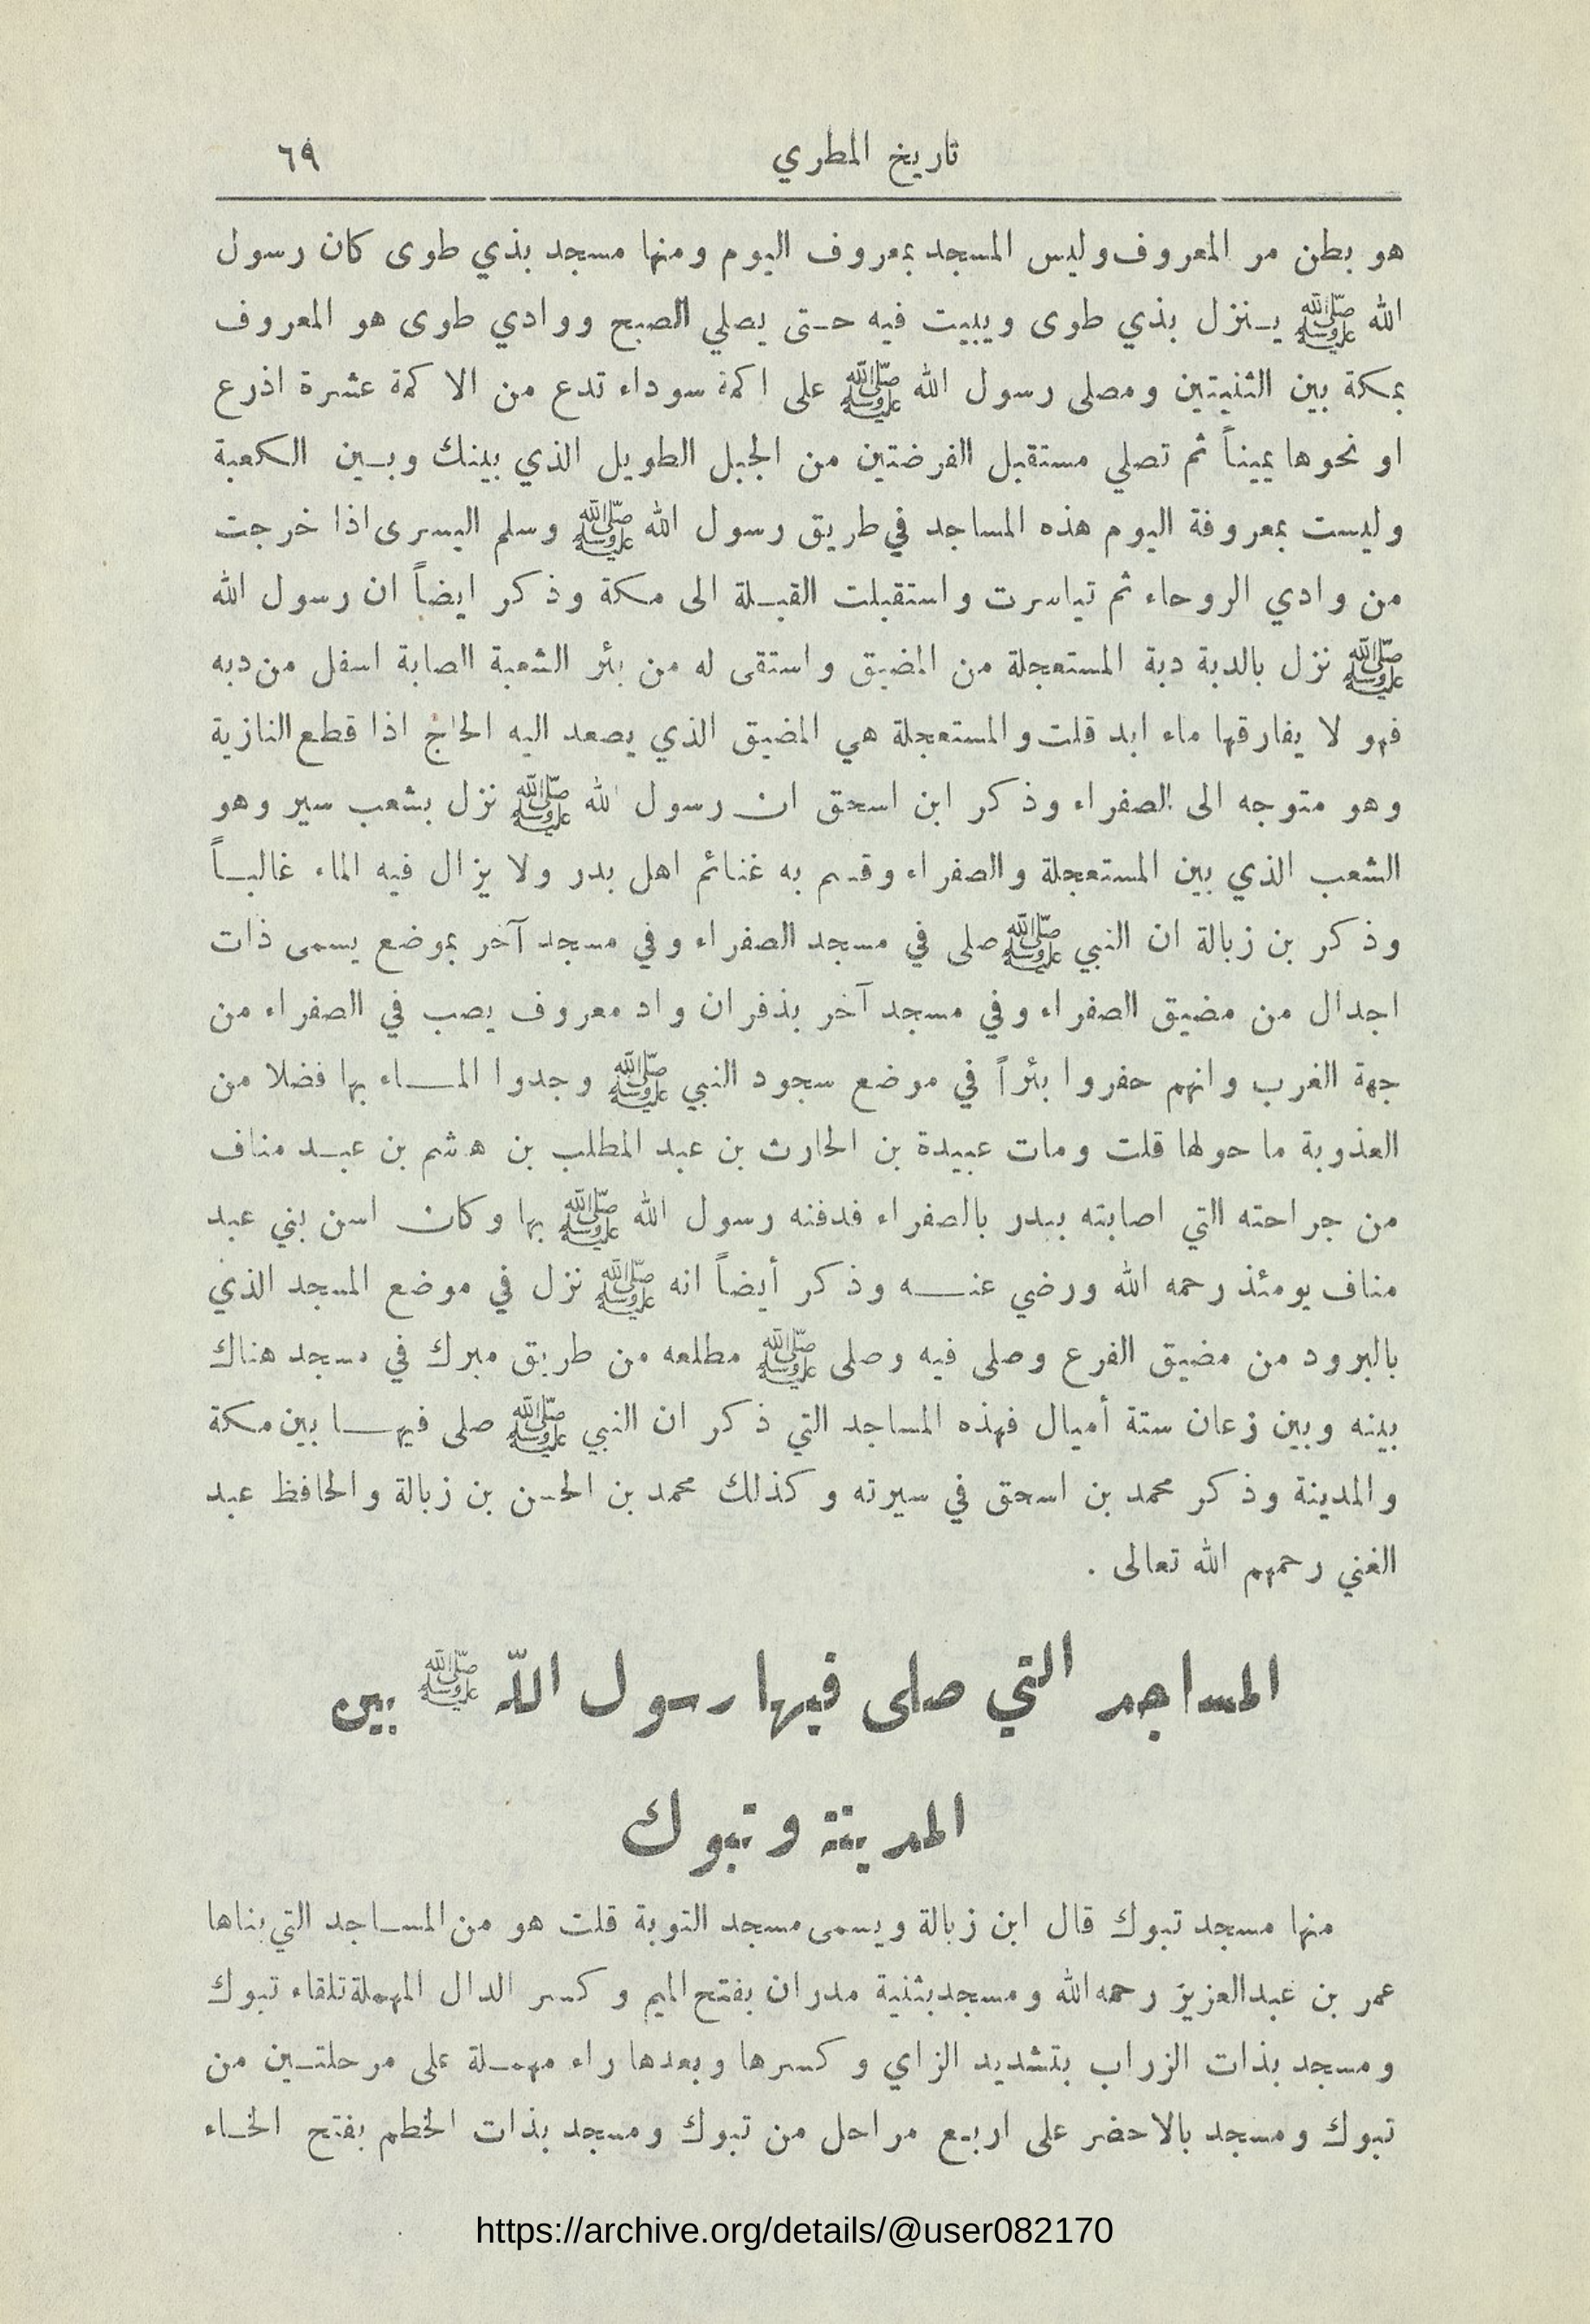 تاريخ المطري ٦٩
هو بطن مر المعروف وليس المسجد بمعروف اليوم ومنها مسجد بذي طوى كان رسول
الله ﷺ ينزل بذي طوى ويبيت فيه حتى يصلي الصبح ووادي طوى هو المعروف
بمكة بين الثنيتين ومصلى رسول الله ﷺ على اكمة سوداء تدع من الاكمة عشرة اذرع
او نحوها يميناً ثم تصلي مستقبل الفرضتين من الجبل الطويل الذي بينك وبين الكعبة
وليست بمعروفة اليوم هذه المساجد في طريق رسول الله ﷺ وسلم اليسرى اذا خرجت
من وادي الروحاء ثم تياسرت واستقبلت القبلة الى مكة وذكر ايضاً ان رسول الله
ﷺ نزل بالدبة دبة المستعجلة من المضيق واستقى له من بئر الشعبة الصابة اسفل من دبه
فهو لا يفارقها ماء ابد قلت والمستعجلة هي المضيق الذي يصعد اليه الحاج اذا قطع النازية
وهو متوجه الى الصفراء وذكر ابن اسحق ان رسول الله ﷺ نزل بشعب سير وهو
الشعب الذي بين المستعجلة والصفراء وقسم به غنائم اهل بدر ولا يزال فيه الماء غالباً
وذكر بن زبالة ان النبي ﷺ صلى في مسجد الصفراء وفي مسجد آخر بموضع يسمى ذات
اجدال من مضيق الصفراء وفي مسجد آخر بذفران واد معروف يصب في الصفراء من
جهة الغرب وانهم حفروا بئراً في موضع سجود النبي ﷺ وجدوا الماء بها فضلا من
العذوبة ما حولها قلت ومات عبيدة بن الحارث بن عبد المطلب بن هشم بن عبد مناف
من جراحته التي اصابته ببدر بالصفراء فدفنه رسول الله ﷺ بها وكان اسن بني عبد
مناف يومئذ رحمه الله ورضي عنه وذكر أيضاً انه ﷺ نزل في موضع المسجد الذي
بالبرود من مضيق الفرع وصلى فيه وصلى ﷺ مطلعه من طريق مبرك في مسجد هناك
بينه وبين زعان ستة أميال فهذه المساجد التي ذكر ان النبي ﷺ صلى فيها بين مكة
والمدينة وذكر محمد بن اسحق في سيرته وكذلك محمد بن الحسن بن زبالة والحافظ عبد
الغني رحمهم الله تعالى .
المساجد التي صلى فيها رسول الله ﷺ بين
المدينة وتبوك
منها مسجد تبوك قال ابن زبالة ويسمى مسجد التوبة قلت هو من المساجد التي بناها
عمر بن عبدالعزيز رحمه الله ومسجد بثنية مدران بفتح الميم وكسر الدال المهملة تلقاء تبوك
ومسجد بذات الزراب بتشديد الزاي وكسرها وبعدها راء مهملة على مرحلتين من
تبوك ومسجد بالاحضر على اربع مراحل من تبوك ومسجد بذات الخطم بفتح الخاء
https://archive.org/details/@user082170